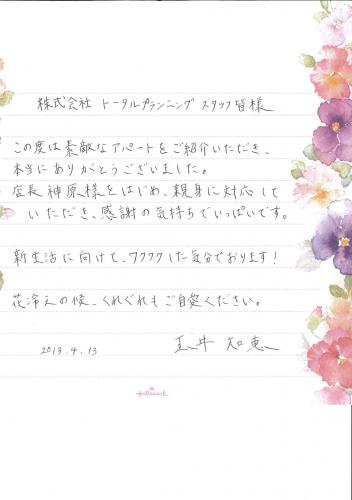 株式会社 トータルプランニング スタッフ皆様
この度は素敵なアパートをご紹介いただき、
本当にありがとうございました。
店長 神原様をはじめ、親身に対応して
いただき、感謝の気持ちでいっぱいです。
新生活に向けて、ワクワクした気分でおります!
花冷えの候、くれぐれもご自愛ください。
2013.4.13
井 知恵
Hallmark